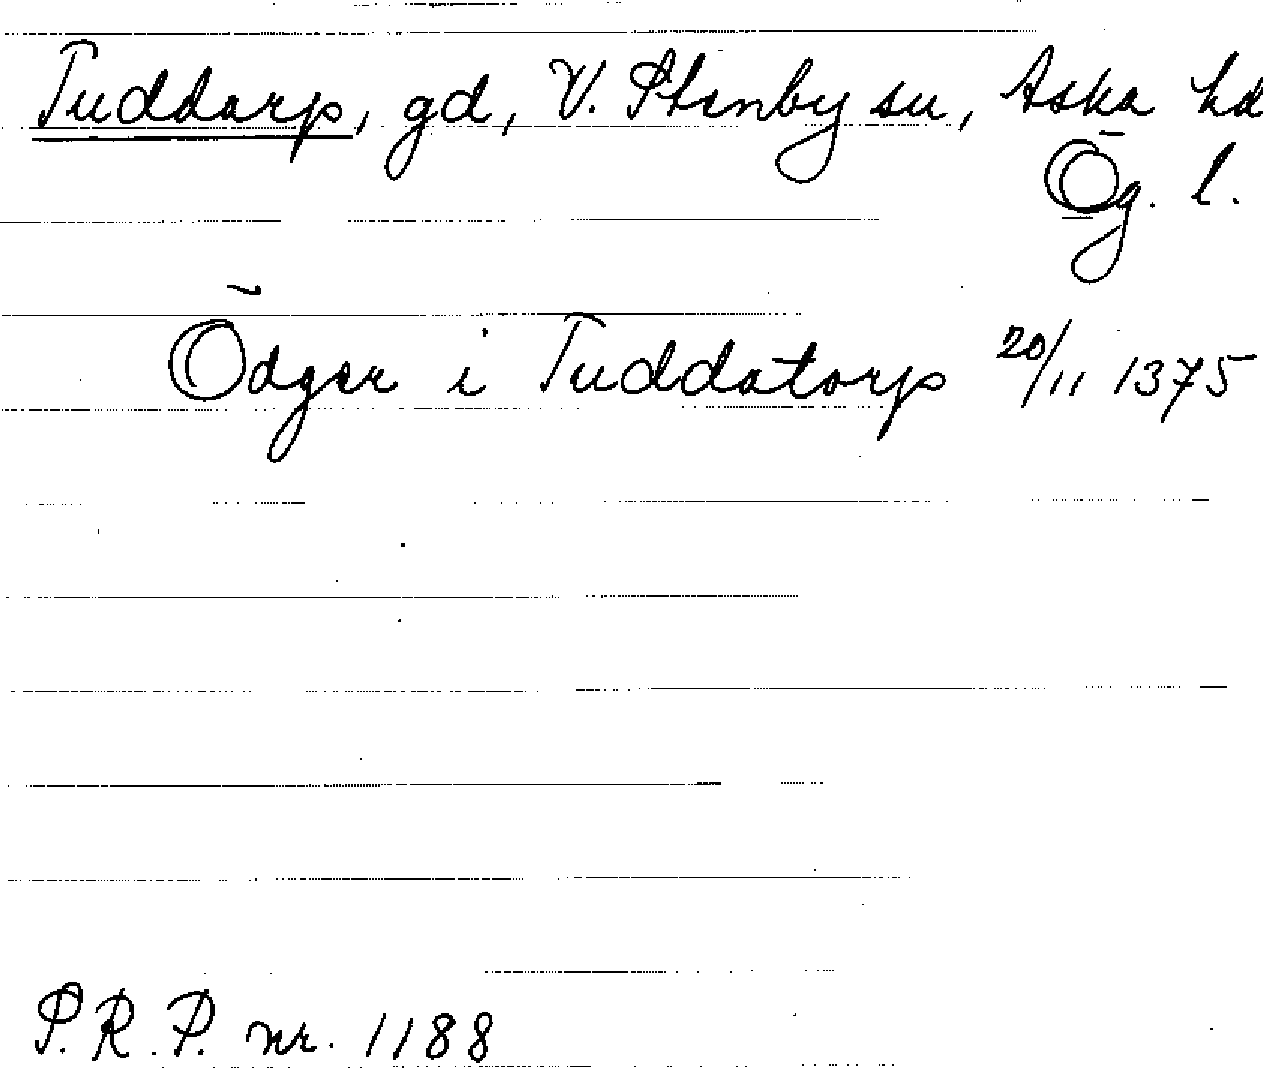 Tuddarp, gd, V. Stenby sn, Aska hd
Ög. l.
Ödger i Tuddatorp 20/11 1375
P.R.P. nr. 1188